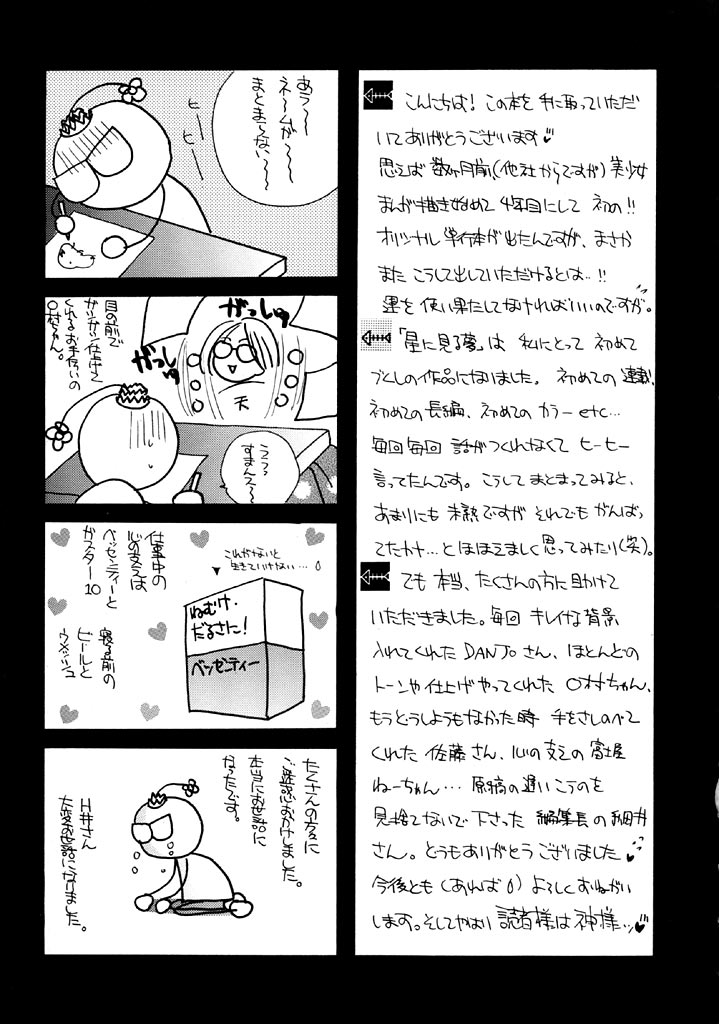 こんにちは！この本を手に取っていただ
いてありがとうございます
思えば数ヶ月前、(他社からですが)美少女
まんが描き始めて4年目にして初の!!
オリジナル単行本が出たんですが、まさか
またこうして出していただけるとは…!!
運を使い果たしてなければいいのですが。
「星に見る夢」は私にとって初めて
づくしの作品になりました。初めての連載、
初めての長編、初めてのカラーetc…
毎回毎回話がつくれなくてヒーヒー
言ってたんです。こうしてまとまってみると、
あまりにも未熟ですがそれでもがんばっ
てたなァ…とほほえましく思ってみたり(笑)。
でも本当、たくさんの方に助けて
いただきました。毎回キレイな背景
入れてくれたDANJoさん、ほとんどの
トーンや仕上げやってくれた〇村ちゃん、
もうどうしようもなかった時手をさしのべて
くれた佐藤さん、心の支えの富士屋
ねーちゃん…原稿の遅いこうのを
見捨てないで下さった編集長の桐井
さん。どうもありがとうございました
今後とも(あれば)よろしくおねがい
します。そしてやはり読者様は神様…
あう〜〜
ネームが〜〜
まとまらない〜〜
ヒーヒー
目の前で
ガツガツ仕上げて
くれるお手伝いの
〇村ちゃん。
がっしゅ
がっしゅ
天
ううっ
すまんえ〜
仕事中の
心の支えは
ベッセンティーと
ガスター10
寝る前の
ビールと
ウメッシュ
これがないと
生きていけない…
ねむけ・
だるさに！
ベッセンティー
たくさんの方々に
ご迷惑おかけしました。
本当にお世話に
なったです。
H井さん
大変お世話になりました。